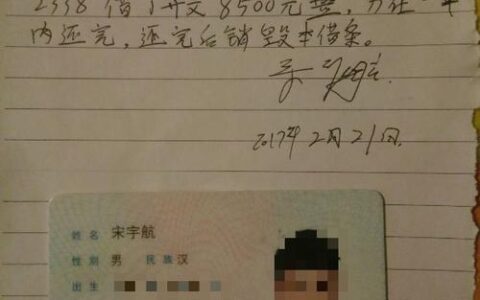 2338 借了开文 8500元整，分在一年
内还完，还完后销毁本借条。
2017年2月21日
姓名 宋宇航
性别 男 民族 汉
出生